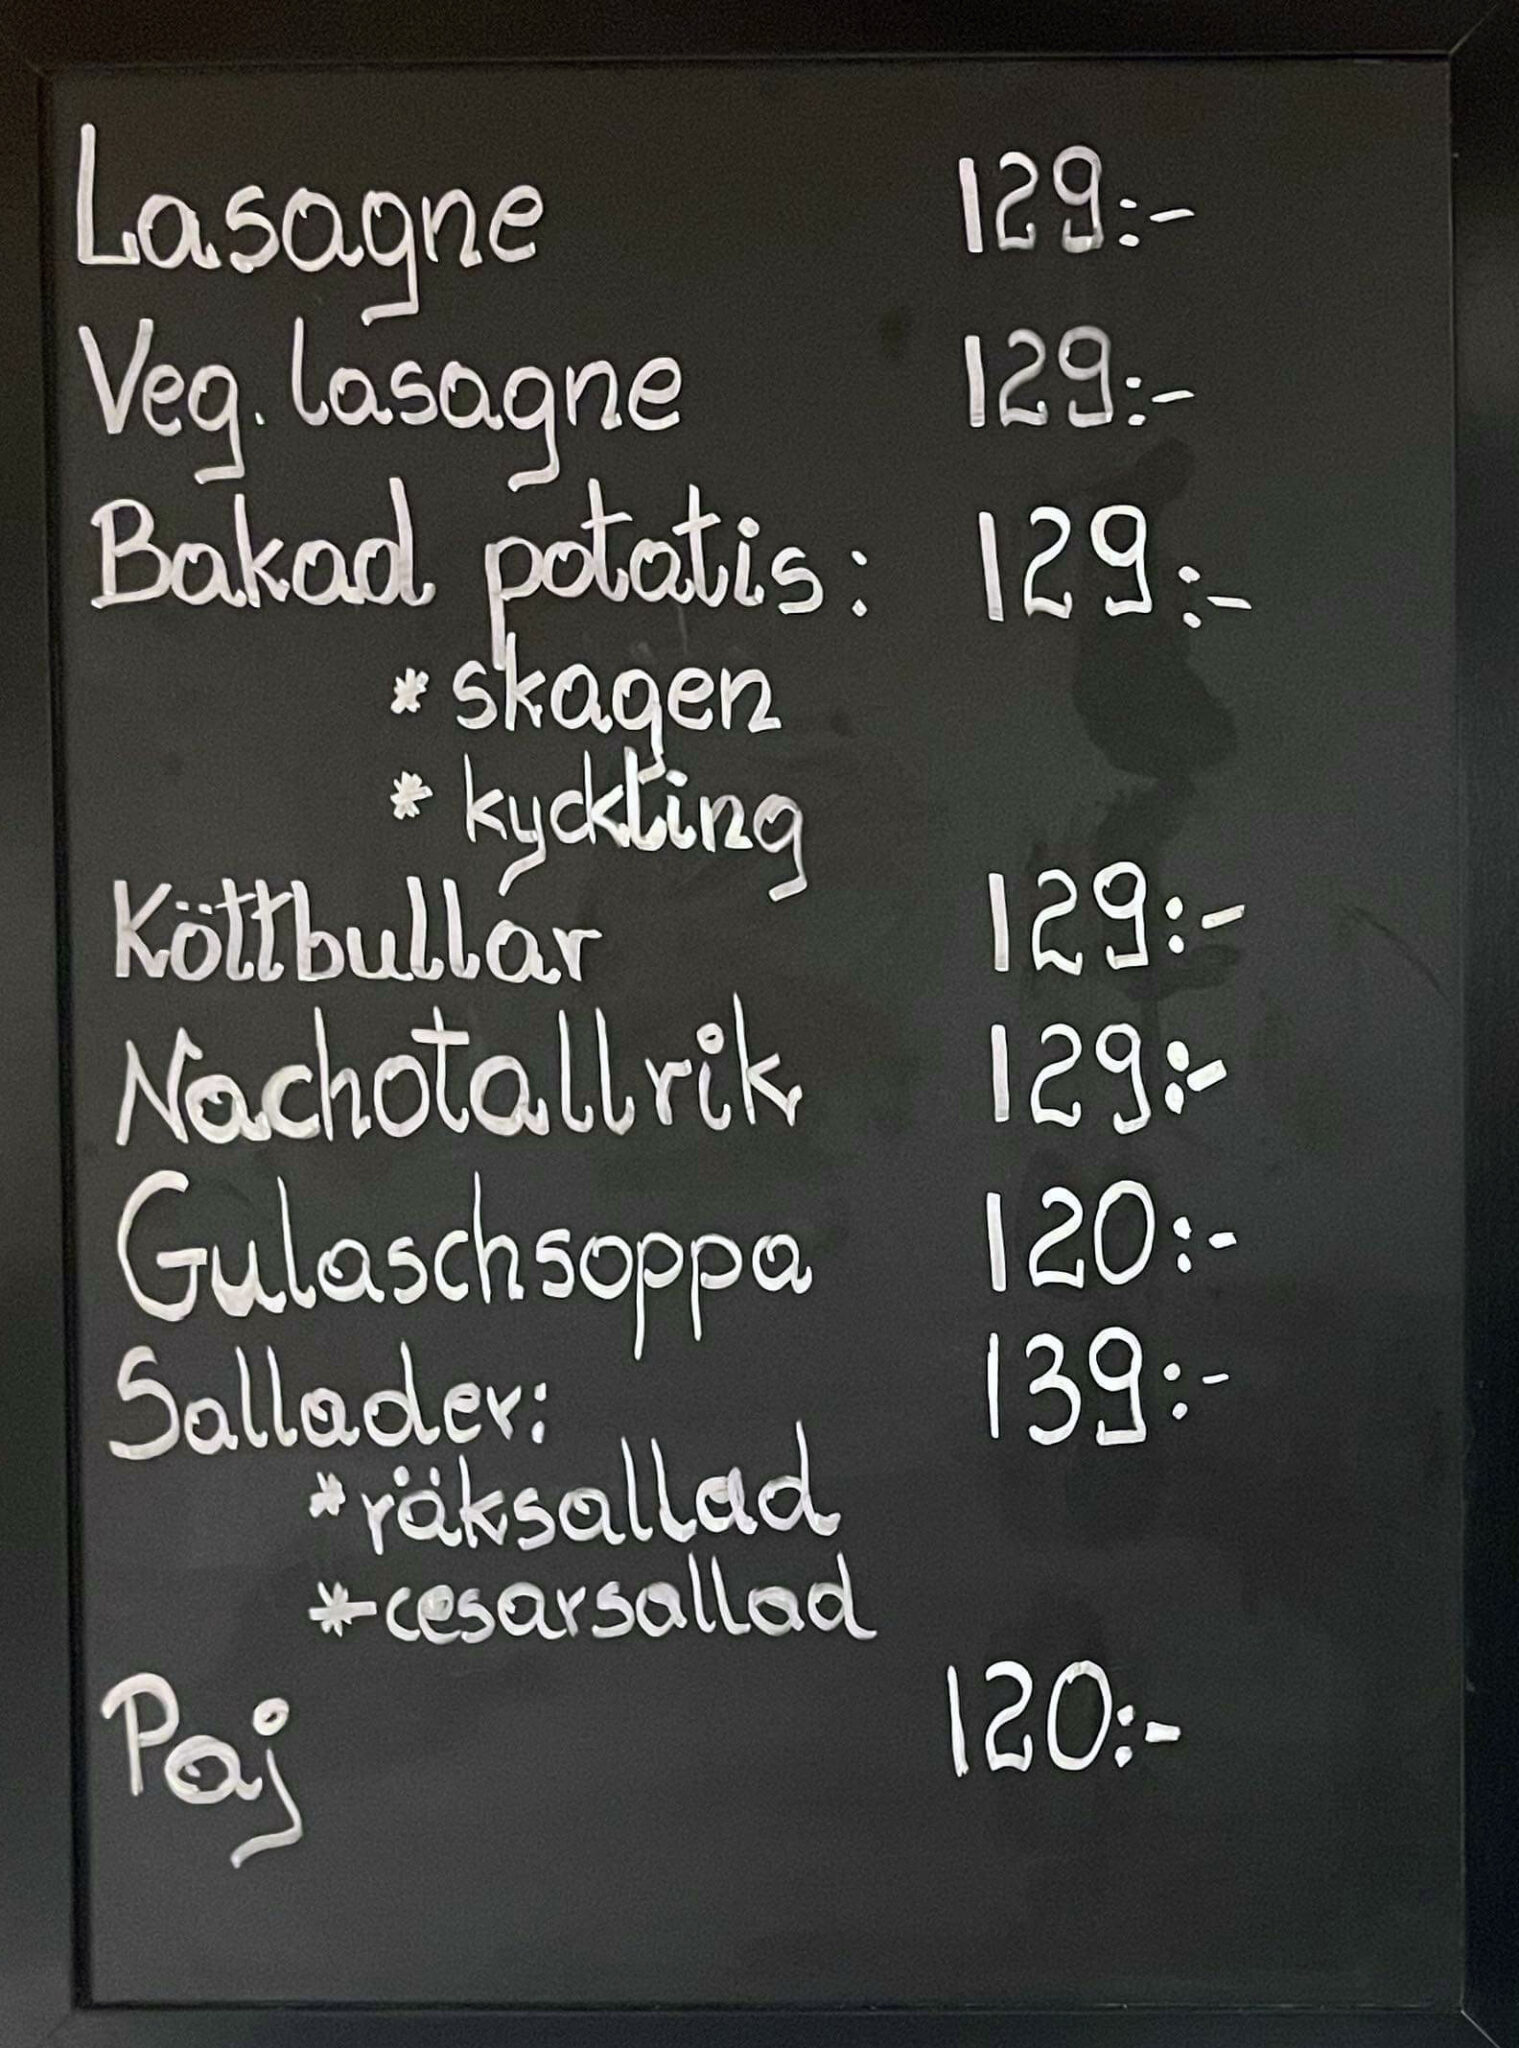 Lasagne 129:-
Veg. lasagne 129:-
Bakad potatis: 129:-
* skagen
* kyckling
Köttbullar 129:-
Nachotallrik 129:-
Gulaschsoppa 120:-
Sallader: 139:-
* räksallad
* cesarsallad
Paj 120:-